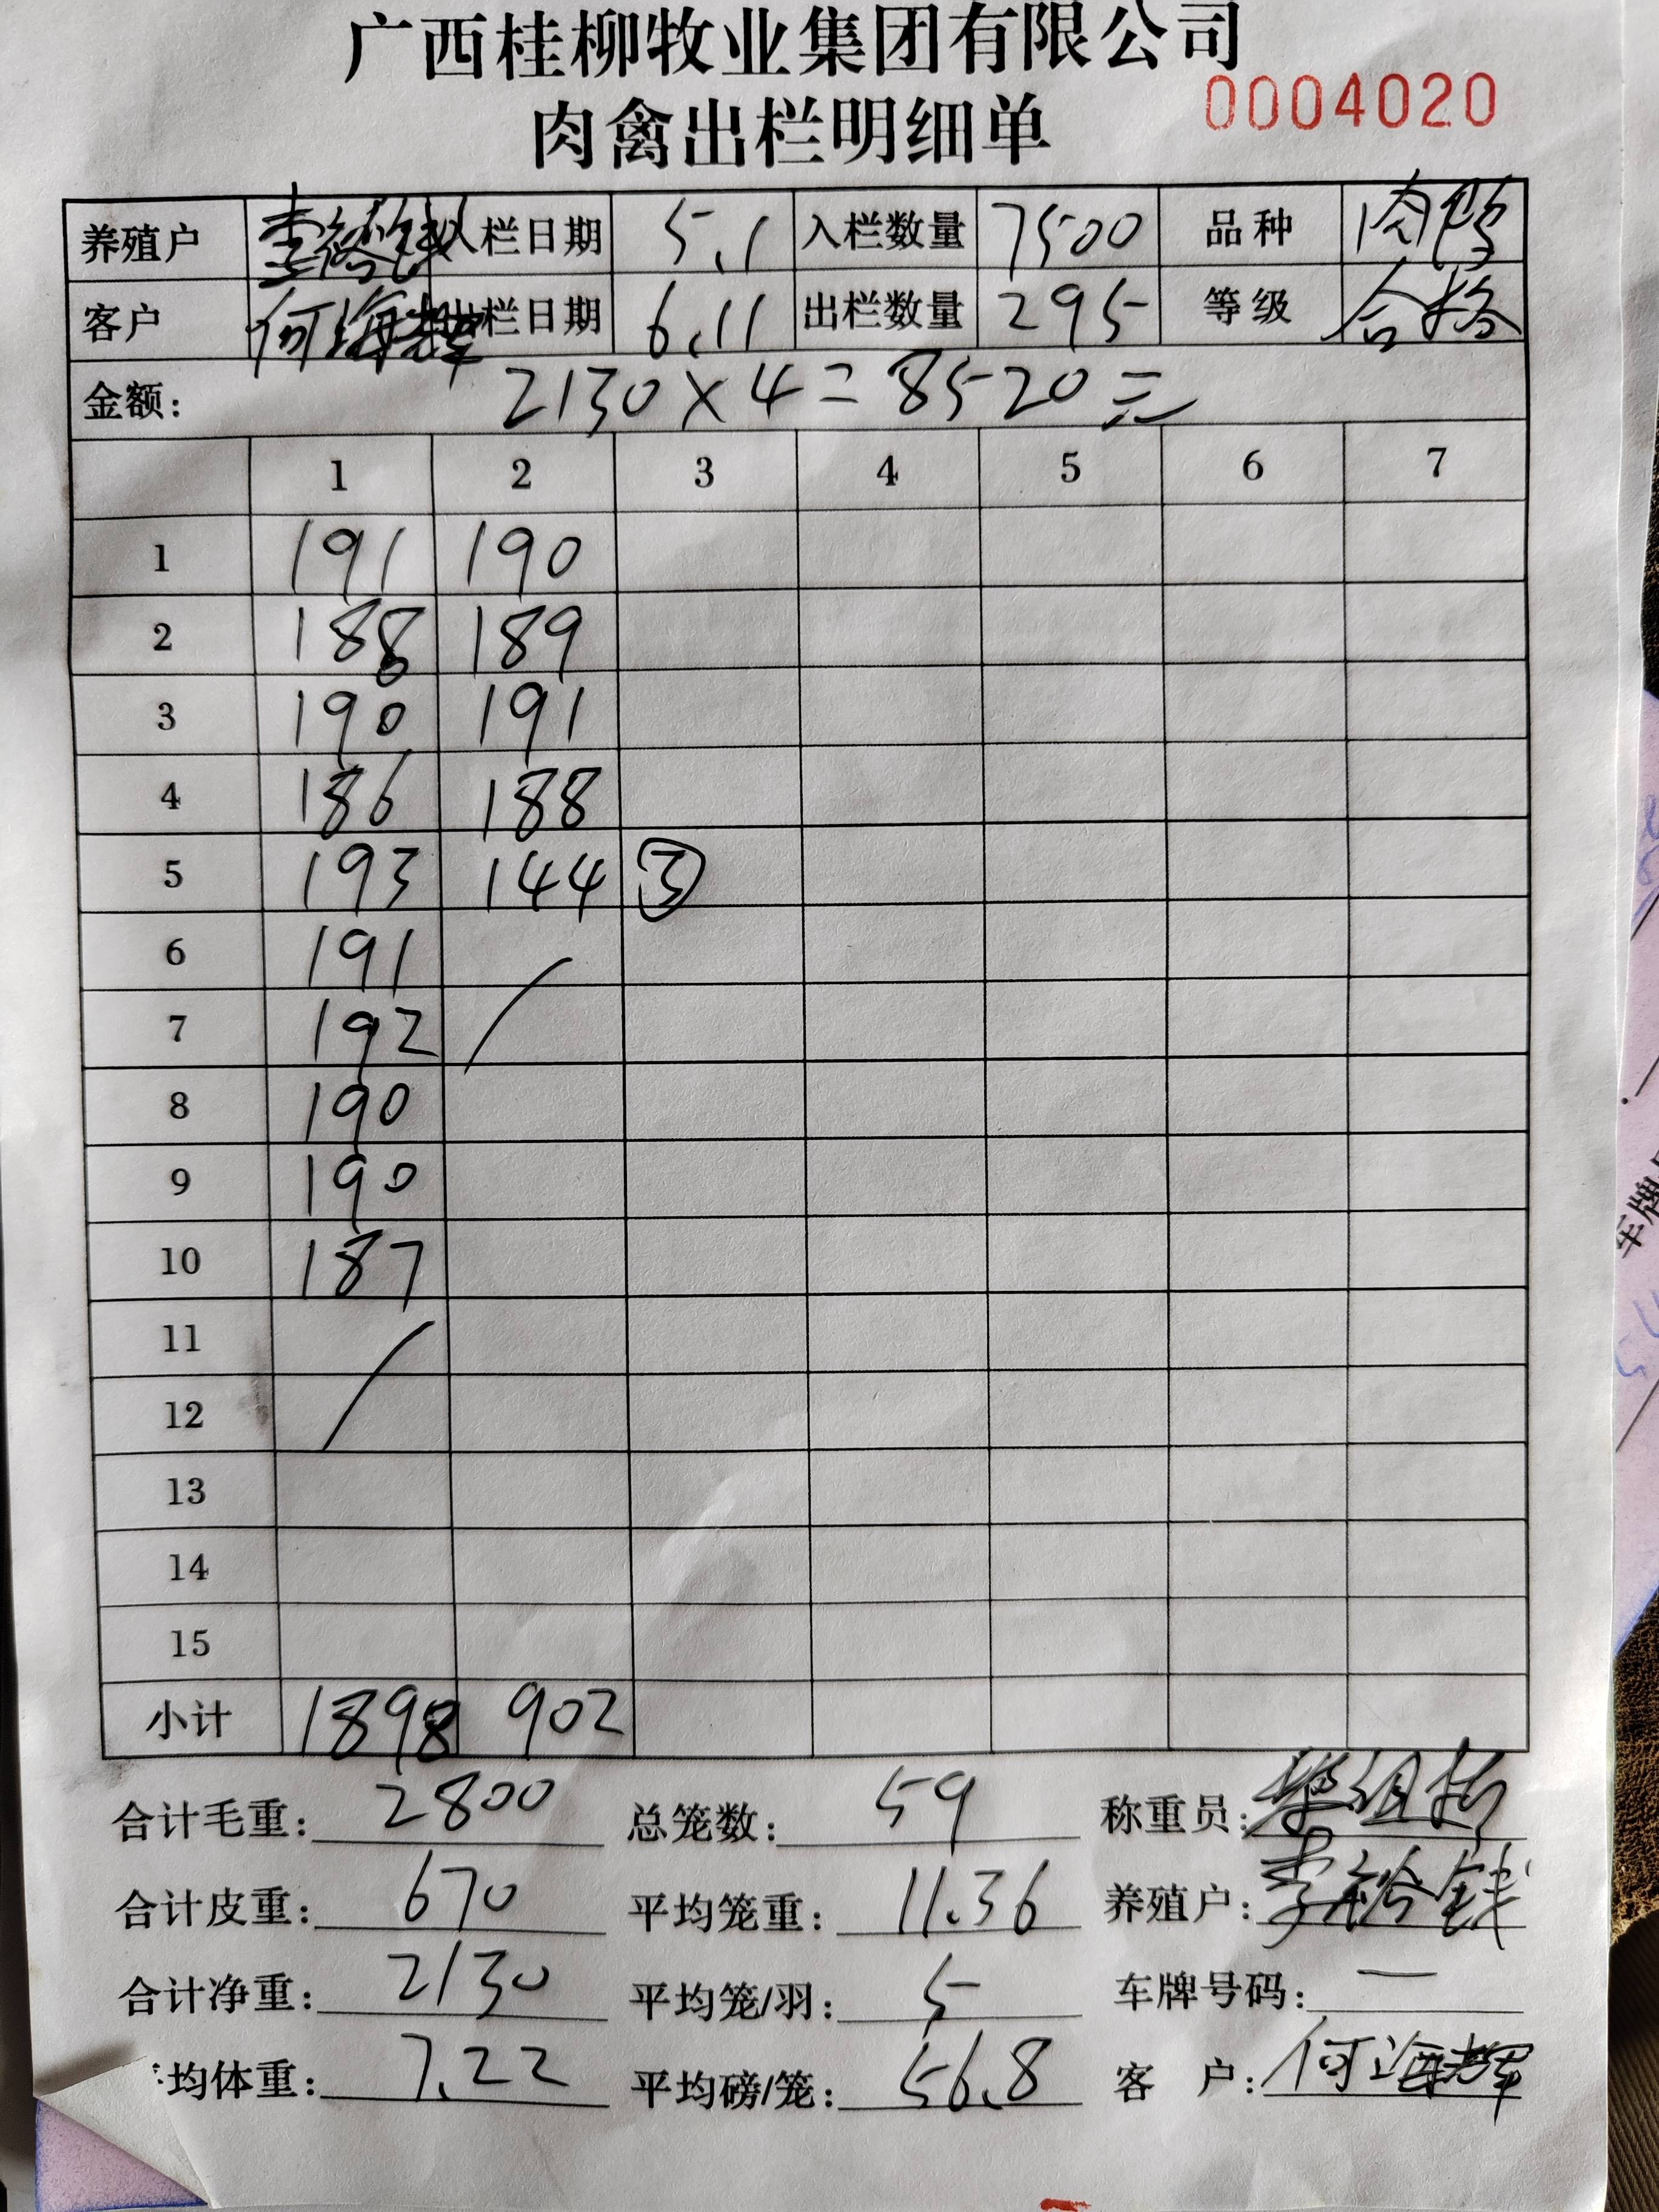 广西桂柳牧业集团有限公司
肉禽出栏明细单
0004020
养殖户 李裕钱 入栏日期 5.1 入栏数量 7500 品种 肉鸭
客户 何海辉 出栏日期 6.11 出栏数量 295 等级 合格
金额: 2130×4=8520元
1 2 3 4 5 6 7
1 191 190
2 188 189
3 190 191
4 186 188
5 193 144 ③
6 191
7 192
8 190
9 190
10 187
11
12
13
14
15
小计 1898 902
合计毛重: 2800 总笼数: 59 称重员:
合计皮重: 670 平均笼重: 11.36 养殖户: 李裕钱
合计净重: 2130 平均笼/羽: 5 车牌号码: —
均体重: 7.22 平均磅/笼: 56.8 客户: 何海辉
车牌